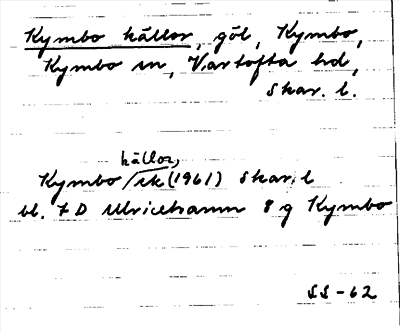 Kymbo källor, göl, Kymbo,
Kymbo sn, Vartofta hd,
Skar. l.
källor,
Kymbo /ek (1961) Skar. l
bl. 7 D Ulricehamn 8 g Kymbo
SS-62